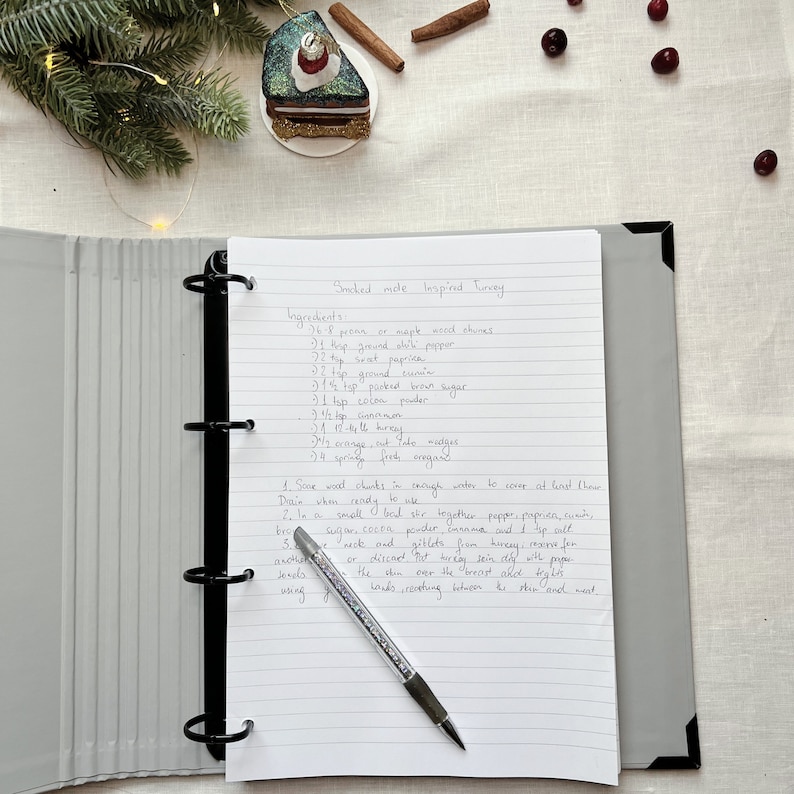 Smoked mole Inspired Turkey
Ingredients:
·) 6-8 pecan or maple wood chunks
·) 1 tbsp ground chili pepper
·) 2 tsp sweet paprika
·) 2 tsp ground cumin
·) 1 1/2 tsp packed brown sugar
·) 1 tsp cocoa powder
·) 1/2 tsp cinnamon
·) 1 12-14 lb turkey
·) 1/2 orange, cut into wedges
·) 4 springs fresh oregano
1. Soak wood chunks in enough water to cover at least 1 hour
Drain when ready to use
2. In a small boal stir together pepper, paprika, cumin,
sugar, cocoa powder, cinnamon and 1 tsp salt.
3. neck and giblets from turkey, reserve for
or discard. Pat turkey skin dry with paper
towels the skin over the breast and
using hands, reaching between the skin and meat.